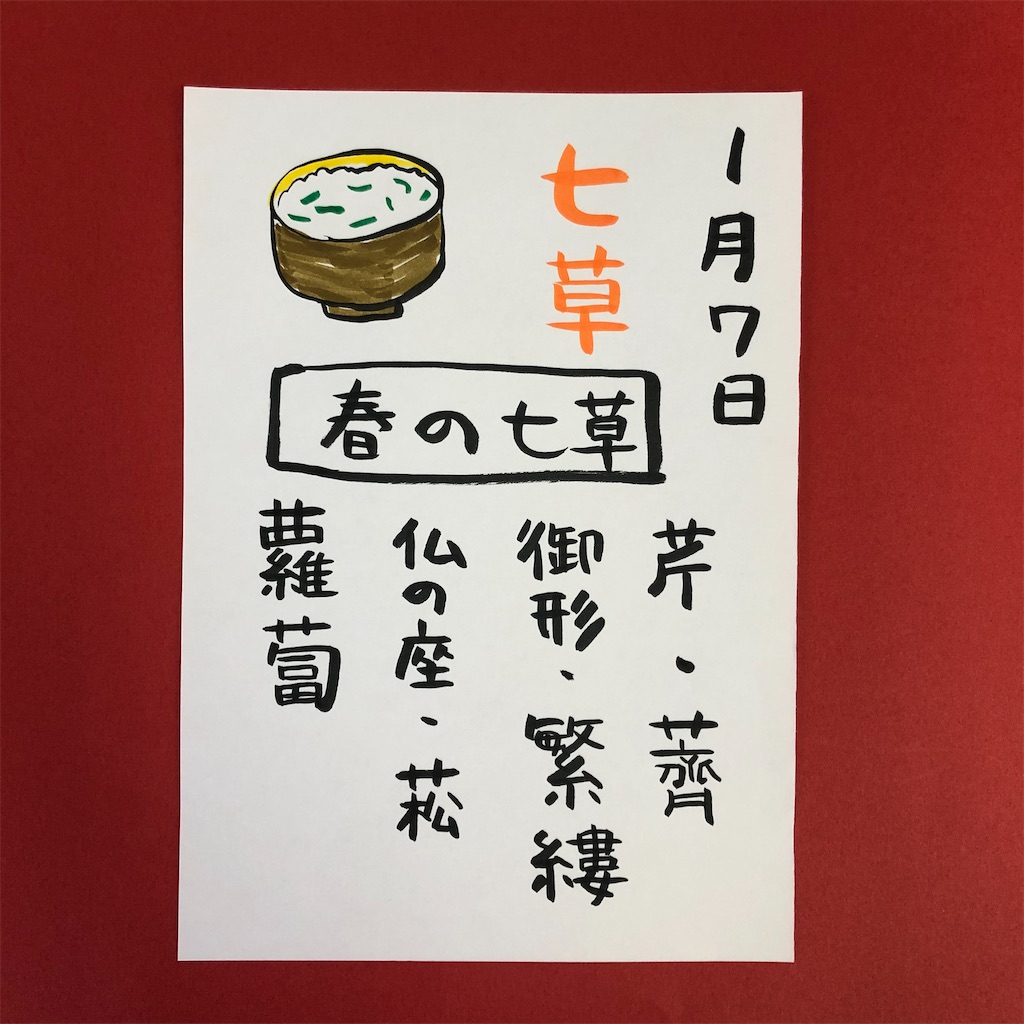 1月7日
七草
春の七草
芹・薺
御形・繁縷
仏の座・菘
蘿蔔